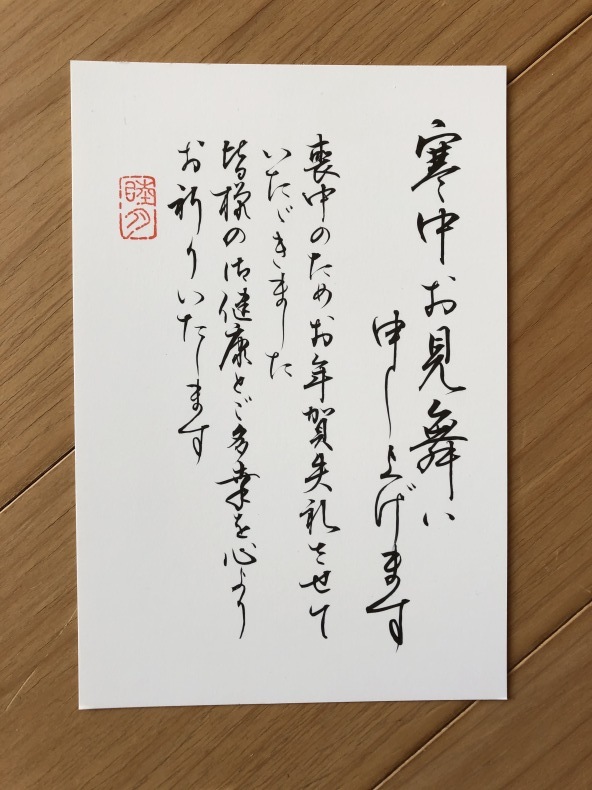 寒中お見舞い
申し上げます
喪中のためお年賀失礼させて
いただきました
皆様の御健康とご多幸を心より
お祈りいたします
睦月